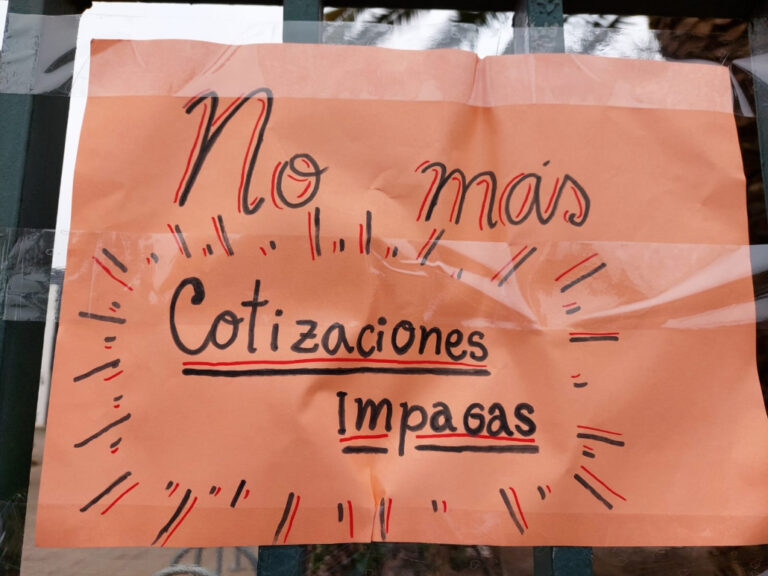 No más
Cotizaciones
Impagas